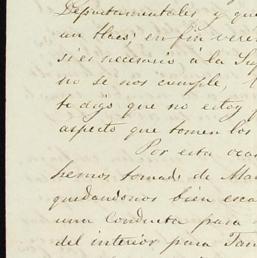 Departamentales y que
un ; en fin vere
si es necesario á la Sup
no se nos cumple,
te digo que no estoy
aspecto que tomen los
Por esta oca
hemos tomado de Ma
quedandonos bien esca
una Conducta para
del interior para Tam